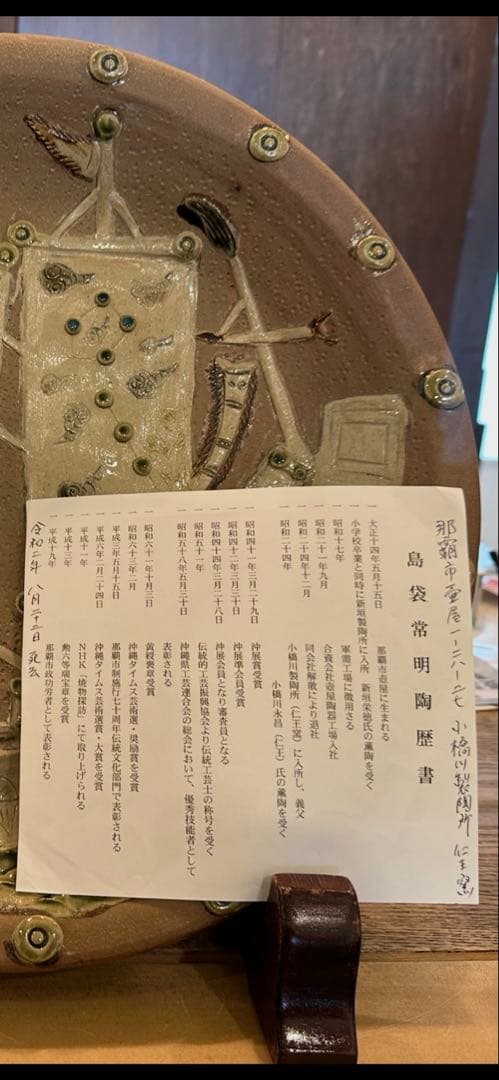 那覇市壷屋一ー二八ー二七 小橋川製陶所 仁王窯
島袋常明陶歴書
一 大正十四年五月十五日 那覇市壺屋に生まれる
一 小学校卒業と同時に新垣製陶所に入所 新垣栄徳氏の薫陶を受く
一 昭和十七年 軍需工場に徴用さる
一 昭和二十一年九月 合資会社壺屋陶器工場入社
一 昭和二十四年十二月 同会社解散により退社
一 昭和二十四年 小橋川製陶所(仁王窯)に入所し、義父
小橋川永昌(仁王)氏の薫陶を受く
一 昭和四十一年三月二十九日 沖展賞受賞
一 昭和四十二年三月三十日 沖展準会員受賞
一 昭和四十四年三月二十八日 沖展会員となり審査員となる
一 昭和五十一年 伝統的工芸振興協会より伝統工芸士の称号を受く
一 昭和五十八年五月三十日 沖縄県工芸連合会の総会において、優秀技能者として
表彰される
一 昭和六十一年十月三日 黄綬褒章受賞
一 昭和六十三年二月 沖縄タイムス芸術選・奨励賞を受賞
一 平成三年五月十五日 那覇市制施行七十周年伝統文化部門で表彰される
一 平成六年二月二十四日 沖縄タイムス芸術選賞・大賞を受賞
一 平成十一年 NHK「焼物探訪」にて取り上げられる
一 平成十三年 勲六等瑞宝章を受賞
一 平成十九年 那覇市政功労者として表彰される
令和二年 八月二十二日 死去